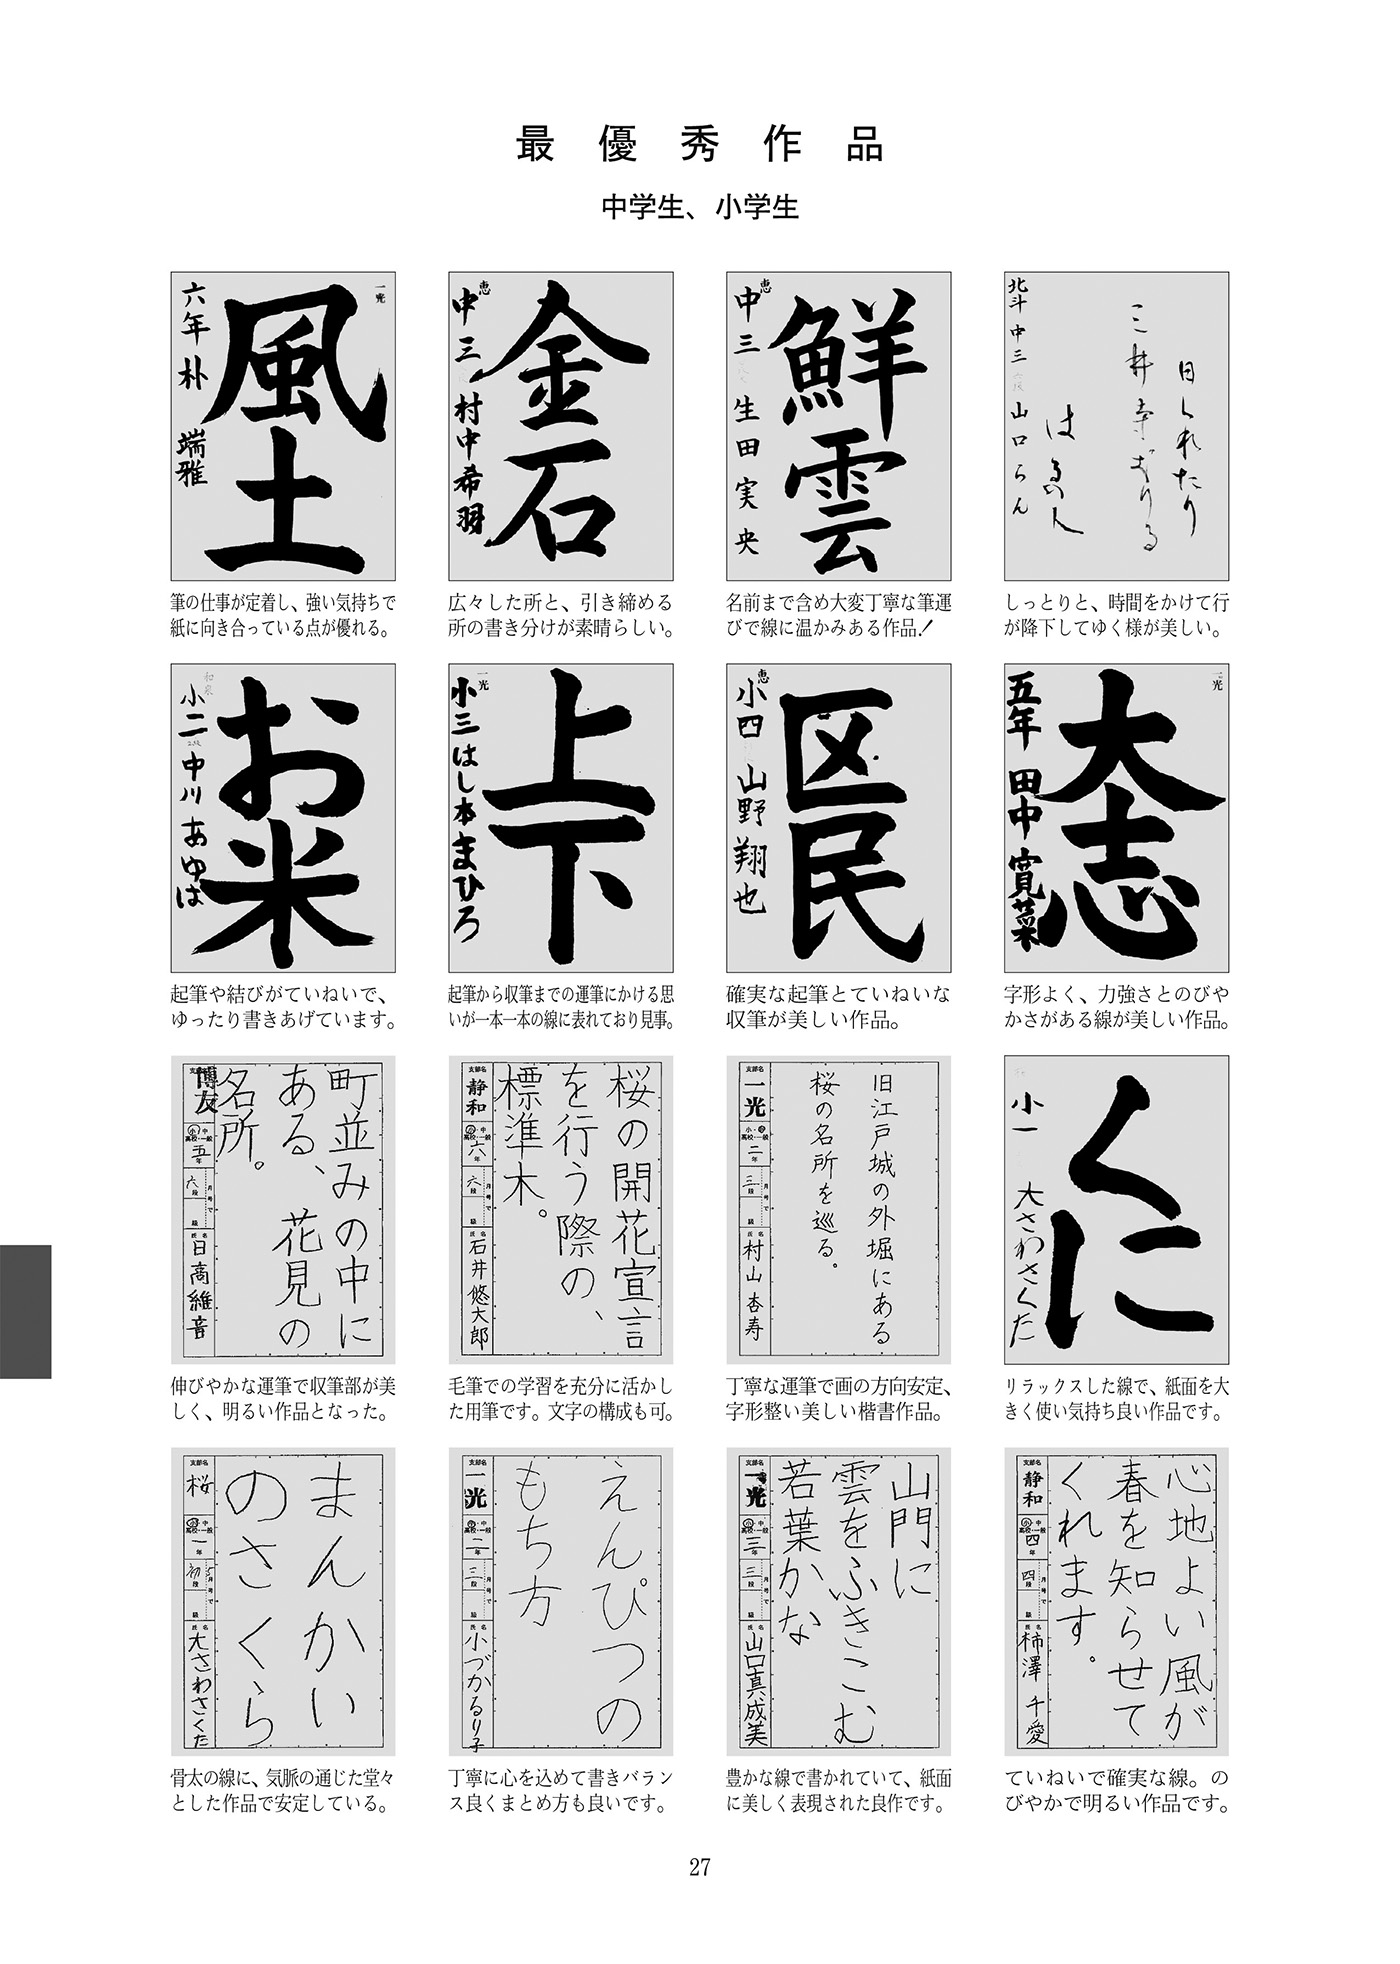 最優秀作品
中学生、小学生
北斗 中三 山口らん
日くれたり
三井寺おりる
はるの人
しっとりと、時間をかけて行
が降下してゆく様が美しい。
恵
鮮雲
中三 生田実央
名前まで含め大変丁寧な筆運
びで線に温かみある作品！
恵
金石
中三 村中希羽
広々した所と、引き締める
所の書き分けが素晴らしい。
一光
風土
六年 朴 端雅
筆の仕事が定着し、強い気持ちで
紙に向き合っている点が優れる。
一光
大志
五年 田中寛菜
字形よく、力強さとのびや
かさがある線が美しい作品。
恵
区民
小四 山野翔也
確実な起筆とていねいな
収筆が美しい作品。
一光
上下
小三 はし本まひろ
起筆から収筆までの運筆にかける思
いが一本一本の線に表れており見事。
和泉
お米
小二 中川あゆは
起筆や結びがていねいで、
ゆったり書きあげています。
くに
小一 大さわさくた
リラックスした線で、紙面を大
きく使い気持ち良い作品です。
旧江戸城の外堀にある
桜の名所を巡る。
支部名 一光
小・中
高校・一般
二年
三段
月号で
級
氏名 村山杏寿
丁寧な運筆で画の方向安定、
字形整い美しい楷書作品。
桜の開花宣言
を行う際の、
標準木。
支部名 静和
小・中
高校・一般
六年
六段
月号で
級
氏名 石井悠大郎
毛筆での学習を充分に活かし
た用筆です。文字の構成も可。
町並みの中に
ある、花見の
名所。
支部名 博友
小・中
高校・一般
五年
六段
月号で
級
氏名 日高維音
伸びやかな運筆で収筆部が美
しく、明るい作品となった。
心地よい風が
春を知らせて
くれます。
支部名 静和
小・中
高校・一般
四年
四段
月号で
級
氏名 柿澤千愛
ていねいで確実な線。の
びやかで明るい作品です。
山門に
雲をふきこむ
若葉かな
支部名 一光
小・中
高校・一般
三年
三段
月号で
級
氏名 山口真成美
豊かな線で書かれていて、紙面
に美しく表現された良作です。
えんぴつの
もち方
支部名 一光
小・中
高校・一般
二年
三段
月号で
級
氏名 小づかるり子
丁寧に心を込めて書きバラン
ス良くまとめ方も良いです。
まんかい
のさくら
支部名 桜
小・中
高校・一般
一年
初段
月号で
級
氏名 大さわさくた
骨太の線に、気脈の通じた堂々
とした作品で安定している。
27